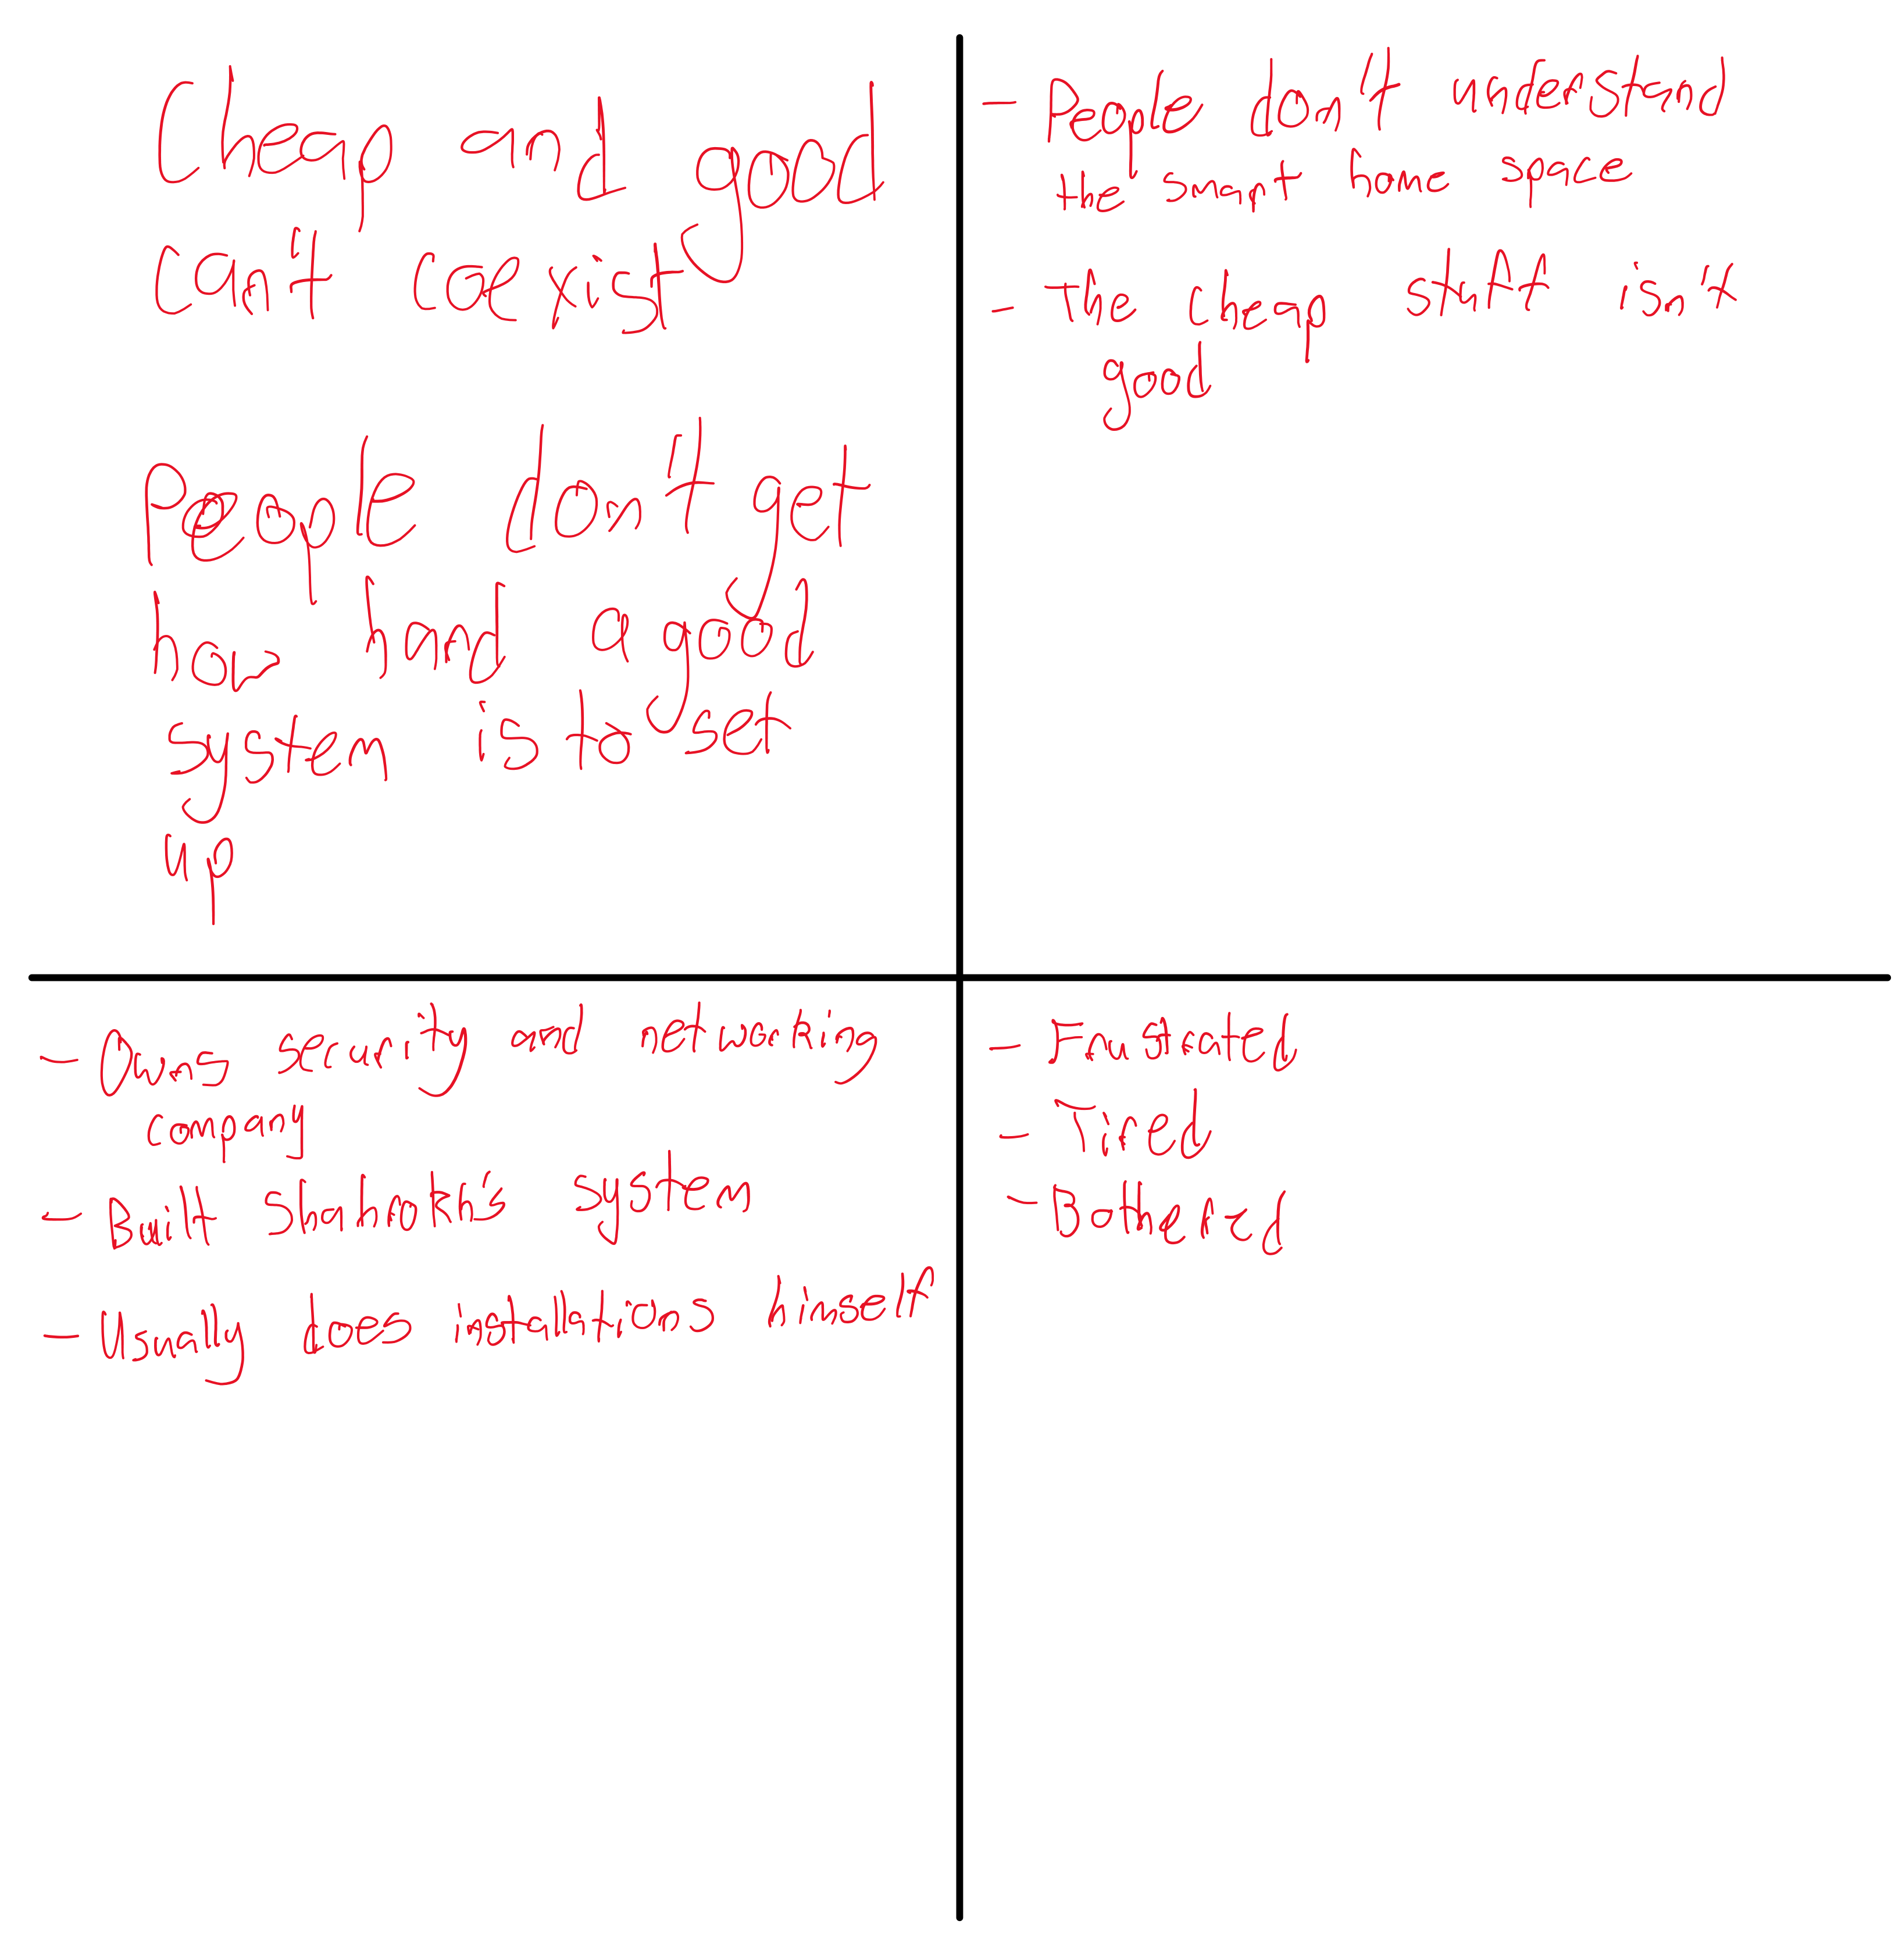 Cheap and good
can't coexist
People don't get
how hard a good
system is to set
up
- People don't understand
the smart home space
- The cheap stuff isn't
good
- Owns security and networking
company
- Built Shanhokh's system
- Usually does installations himself
- Frustrated
- Tired
- Bothered